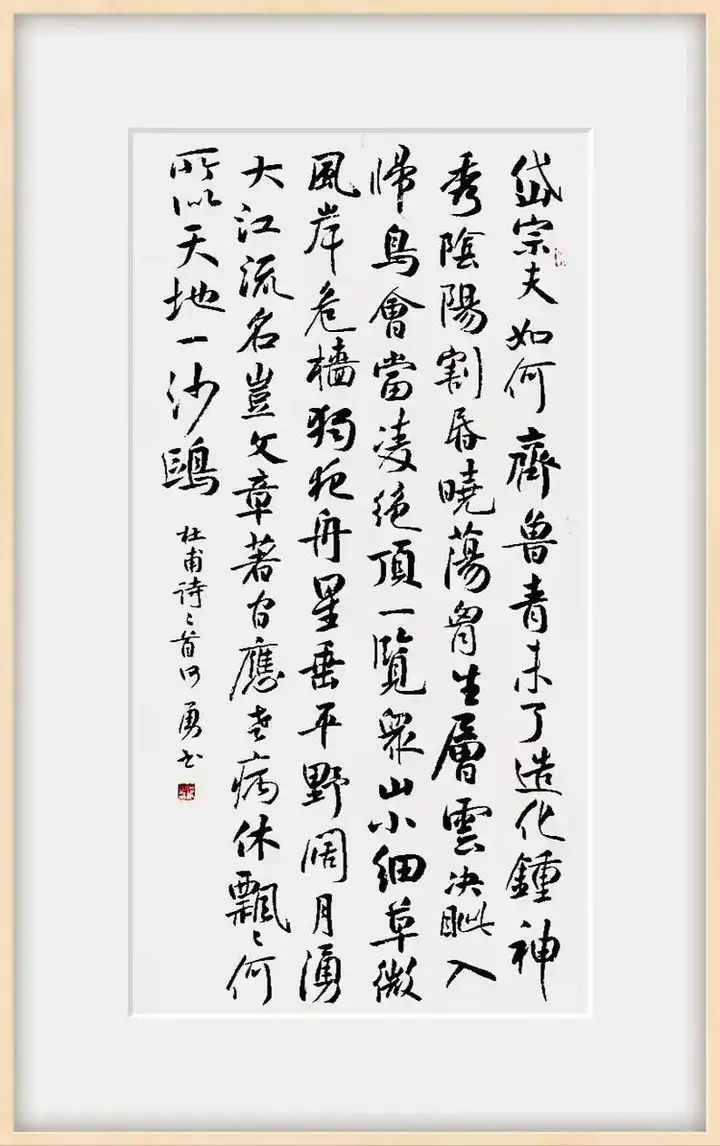 岱宗夫如何齊魯青未了造化鍾神
秀陰陽割昏曉蕩胷生層雲決眦入
歸鳥會當凌絕頂一覽眾山小細草微
風岸危檣獨夜舟星垂平野闊月湧
大江流名豈文章著官應老病休飄〻何
所似天地一沙鷗
杜甫詩二首何勇书